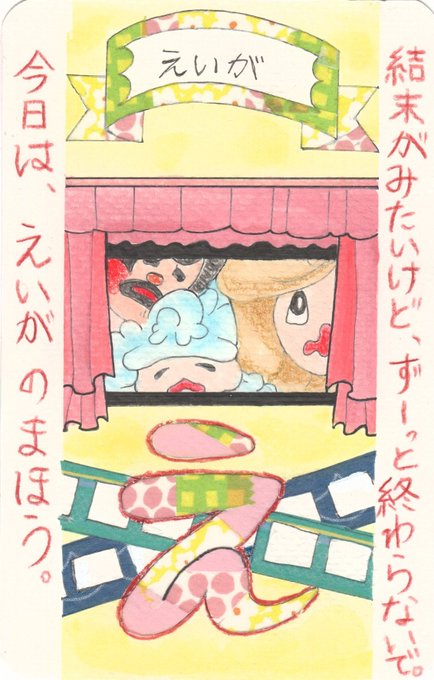 えいが
結末がみたいけど、ずーっと終わらないで。
今日は、えいがのまほう。
え